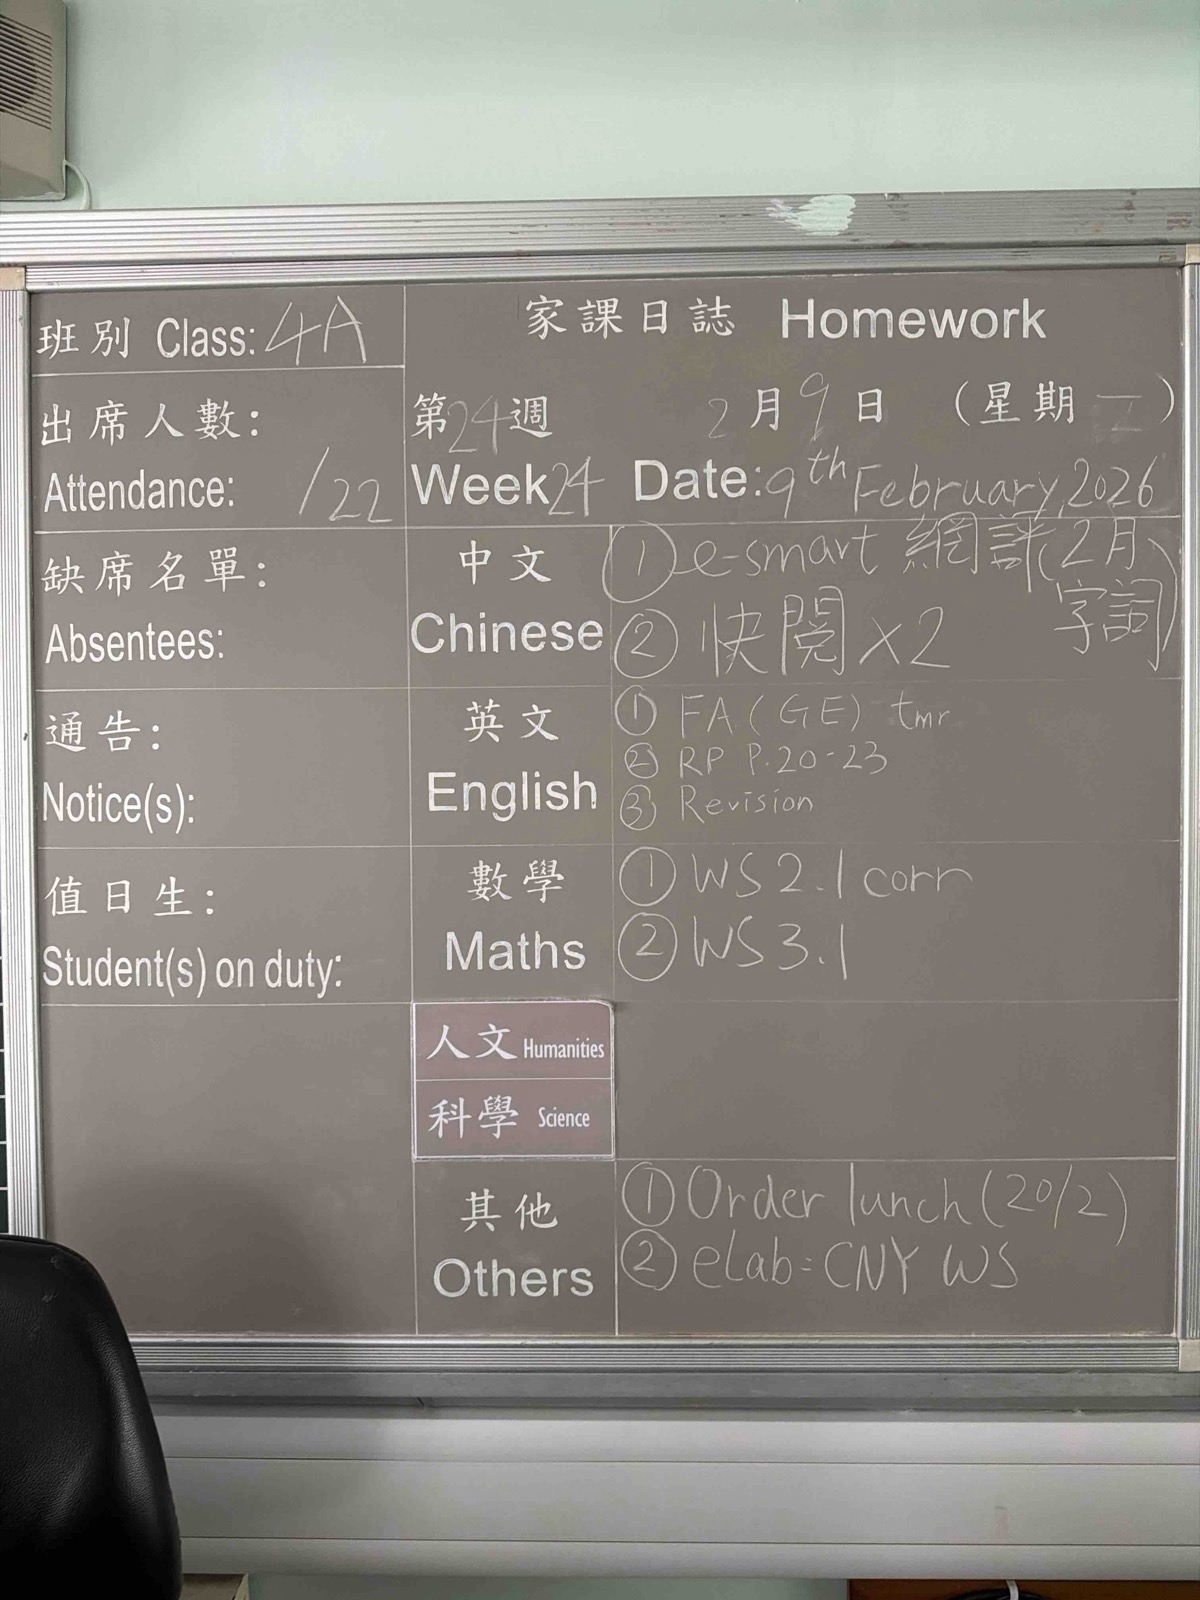 班別 Class: 4A
家課日誌 Homework
出席人數:
Attendance: /22
第24週 2月9日 (星期一)
Week24 Date: 9th February, 2026
缺席名單:
Absentees:
中文
Chinese
① e-smart 網評(2月
字詞)
② 快閱 x2
通告:
Notice(s):
英文
English
① FA (GE) tmr
② RP P.20-23
③ Revision
值日生:
Student(s) on duty:
數學
Maths
① WS 2.1 corr
② WS 3.1
人文 Humanities
科學 Science
其他
Others
① Order lunch (20/2)
② eLab: CNY WS